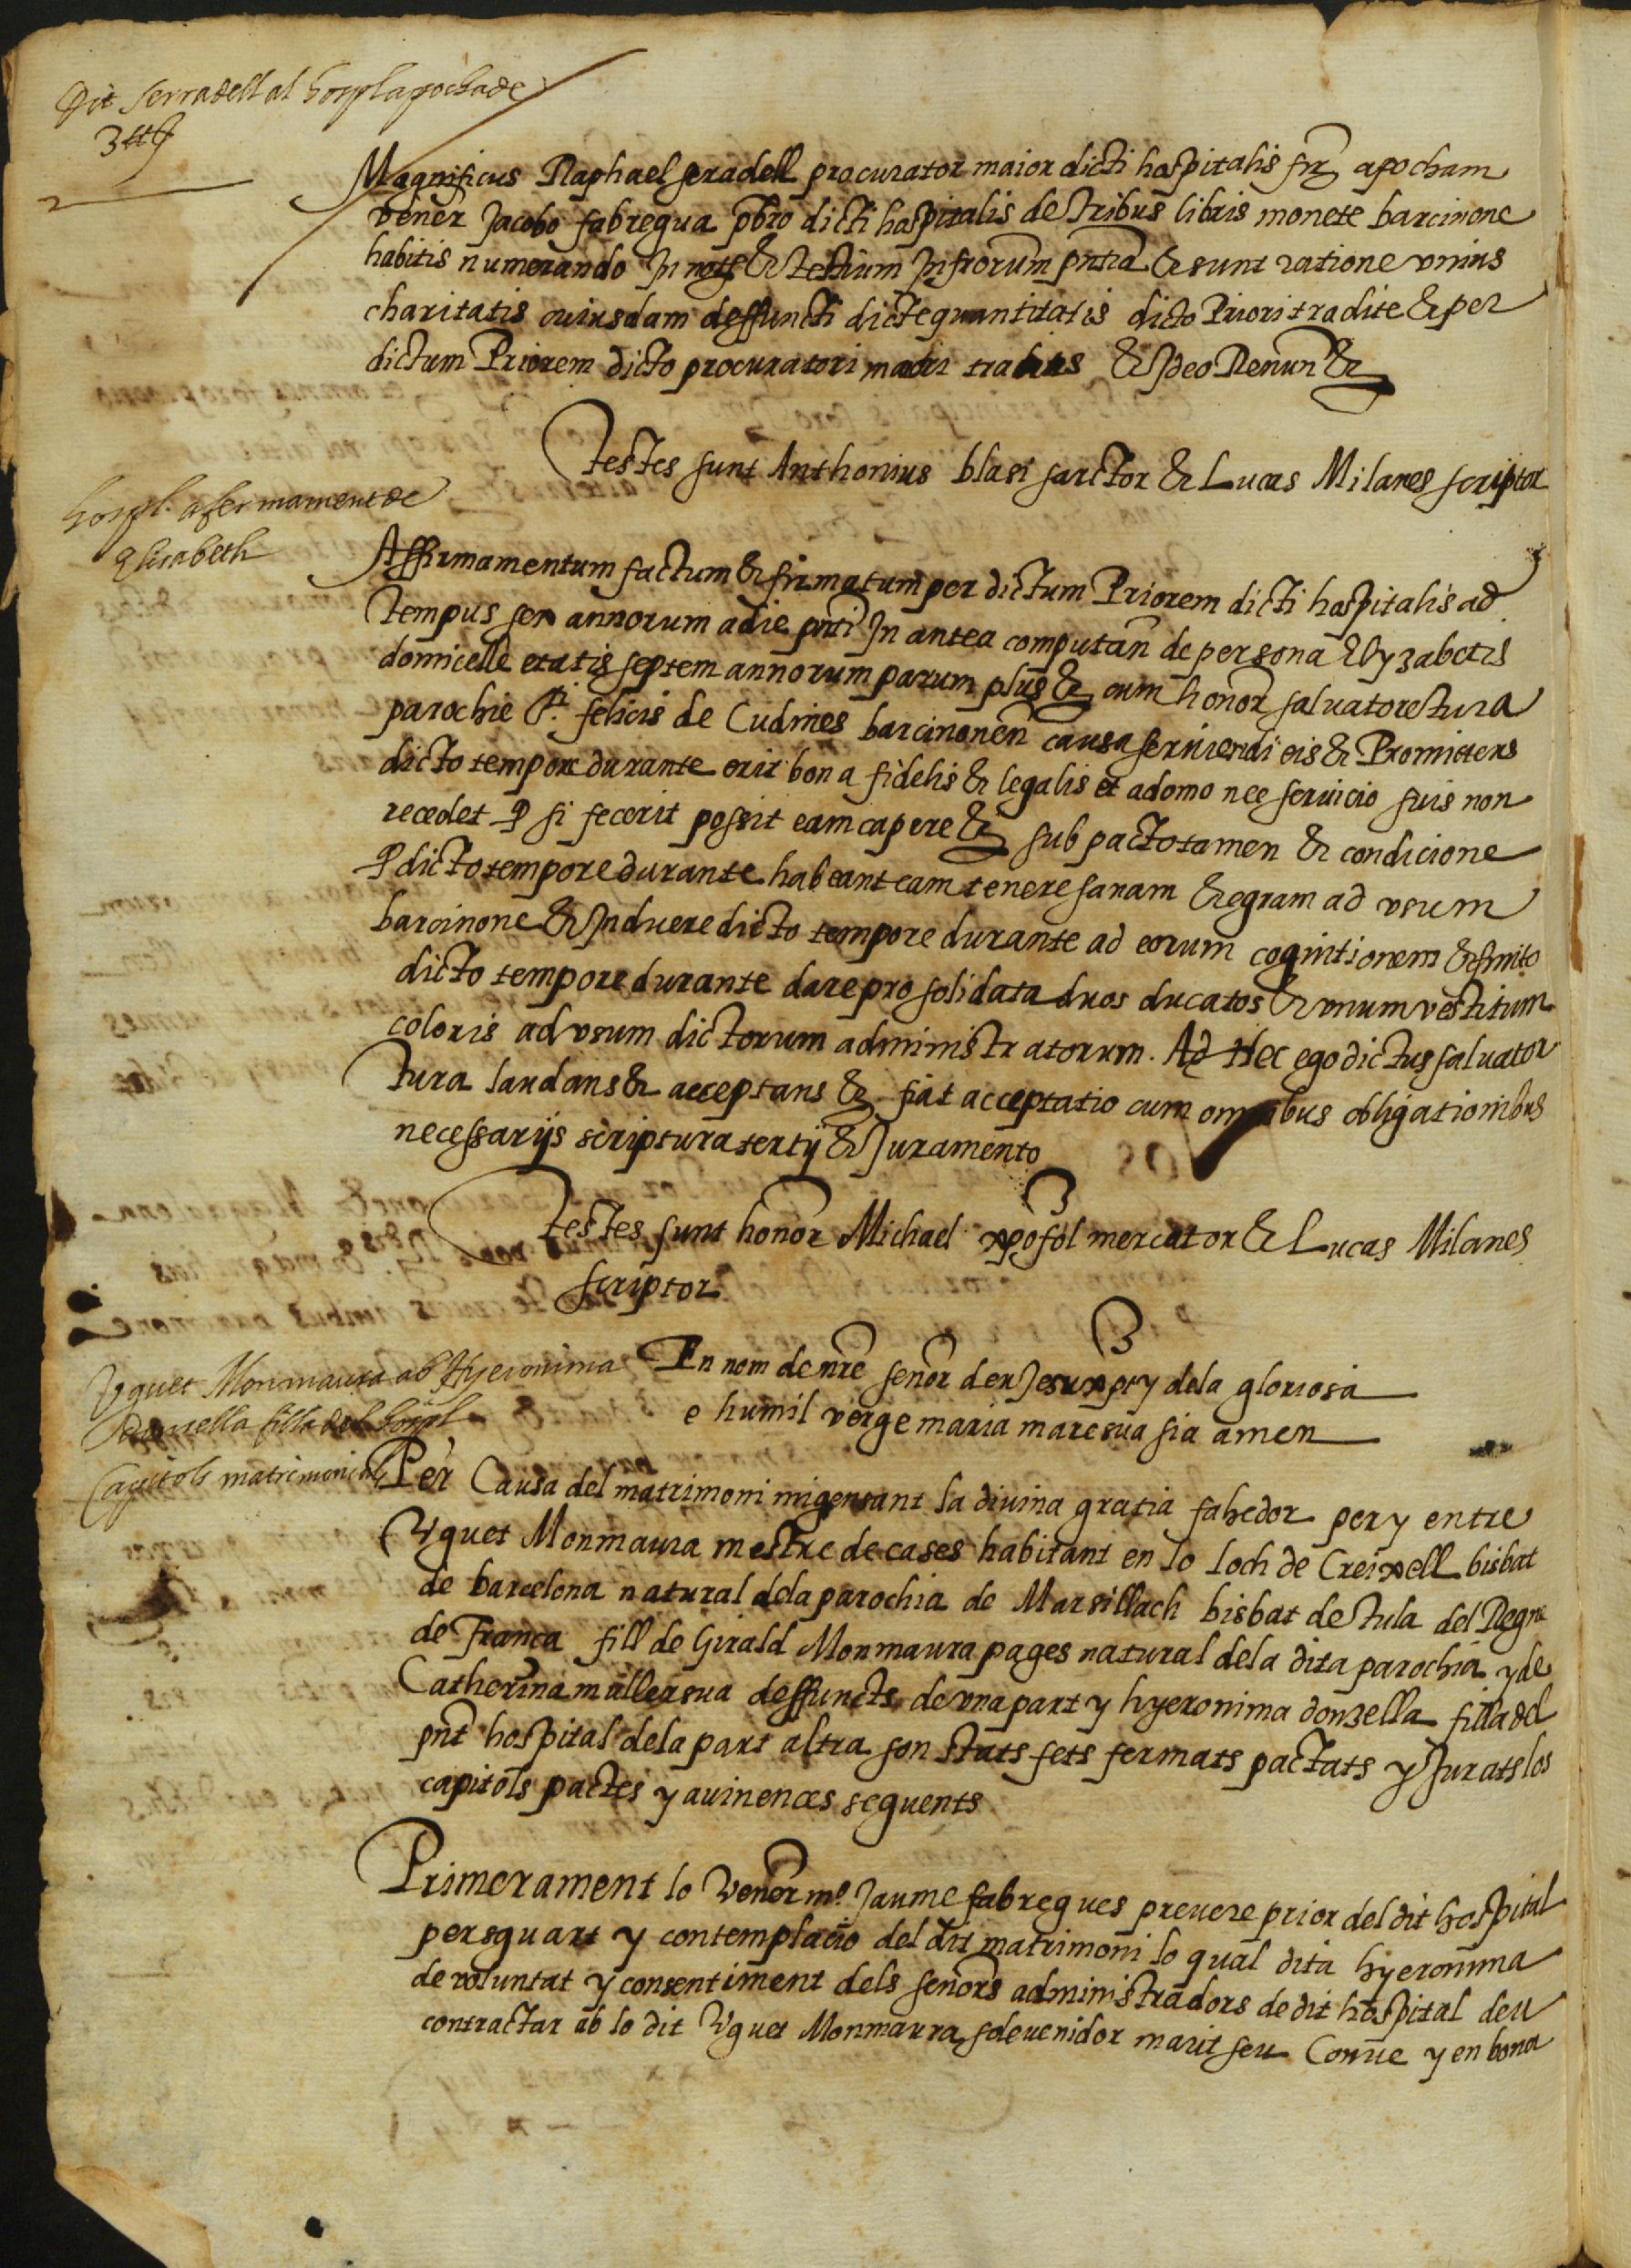 Dit Serradell al hospl apocha de
3 ₶
Magnificus Raphael seradell procurator maior dicti hospitalis fir apocham
vener Jacobo fabregua pbro dicti hospitalis de tribus libris monete barcinone
habitis numerando In & testium Infrorum pntia & sunt ratione vnius
charitatis cuiusdam deffuncti dicte quantitatis dicto Priori tradite & per
dictum Priorem dicto procuratori maori tradits & Ideo Renun &
testes sunt Anthonius blasi sarctor & Lucas Milanes scriptor
hospl. afermament de
Elisabeth
Affirmamentum factum & firmatum per dictum Priorem dicti hospitalis ad
tempus sex annorum a die pnti In antea computan de persona Elyzabetis
domicelle etatis septem annorum parum plus & cum honor saluatore tura
parochie sti felicis de Cudines barcinonen causa seruiendi eis & Promictens
dicto tempore durante erit bona fidelis & legalis et a domo nec seruicio suis non
recedet q si fecerit possit eam capere & sub pacto tamen & condicione
q dicto tempore durante habeant eam tenere sanam & egram ad vsum
barcinone & Induere dicto tempore durante ad eorum cognitionem & finito
dicto tempore durante dare pro solidata duos ducatos & vnum vestitum
coloris ad vsum dictorum administratorum. Ad Hec ego dictus saluator
tura laudans & acceptans & fiat acceptatio cum omnibus obligationibus
necessarijs scriptura tertij & Juramento
testes sunt honor Michael xpofol mercator & Lucas Milanes
scriptor
Vguet Monmaura ab Hyeronima
donzella filla del hospl
Capitols matrimonials
En nom de nre senor deu Jesuxpt y dela gloriosa
e humil verge maria mare sua sia amen
Per Causa del matrimoni migensant la diuina gratia fahedor per y entre
Vguet Monmaura mestre de cases habitant en lo loch de Creixell bisbat
de barcelona natural dela parochia de Marsillach bisbat de tula del Regne
de franca fill de Girald Monmaura pages natural dela dita parochia y de
Catherina muller sua deffuncts de vna part y hyeronima donzella filla del
pnt hospital dela part altra son stats fets fermats pactats y Jurats los
capitols pactes y auinences seguents
Primerament lo Vener mo Jaume fabregues preuere prior del dit hospital
per sguart y contemplacio del dit matrimoni lo qual dita hyeronima
de voluntat y consentiment dels senors administradors de dit hospital deu
contractar ab lo dit Vguet Monmaura sdeuenidor marit seu Conue y en bona